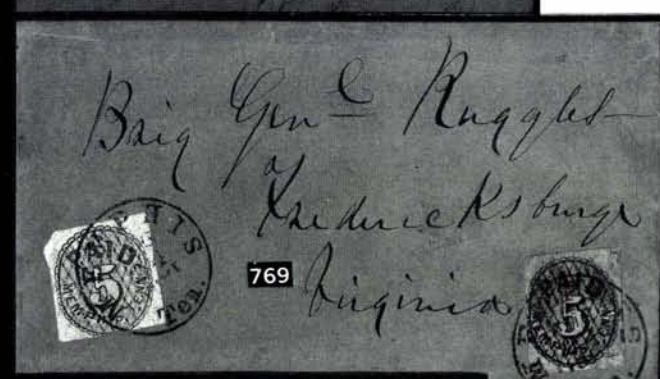 Brig Genl Ruggles
of
Fredericksburgh
Virginia
769
PHIS
Ten.
PAID
5
MEMPHIS, TENN.
PAID
5
MEMPHIS, TENN.